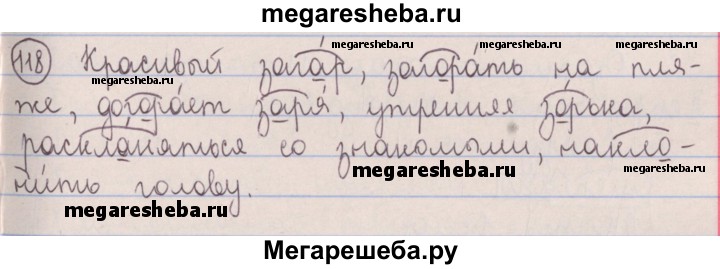 megaresheba.ru
118 Красивый загар, загорать на пля-
megaresheba.ru megaresheba.ru
megaresheba.ru
же, догорает заря, утренняя зорька,
megaresheba.ru megaresheba.ru
раскланяться со знакомыми, накло-
megaresheba.ru megaresheba.ru
нить голову.
megaresheba.ru
Мегарешеба.ру